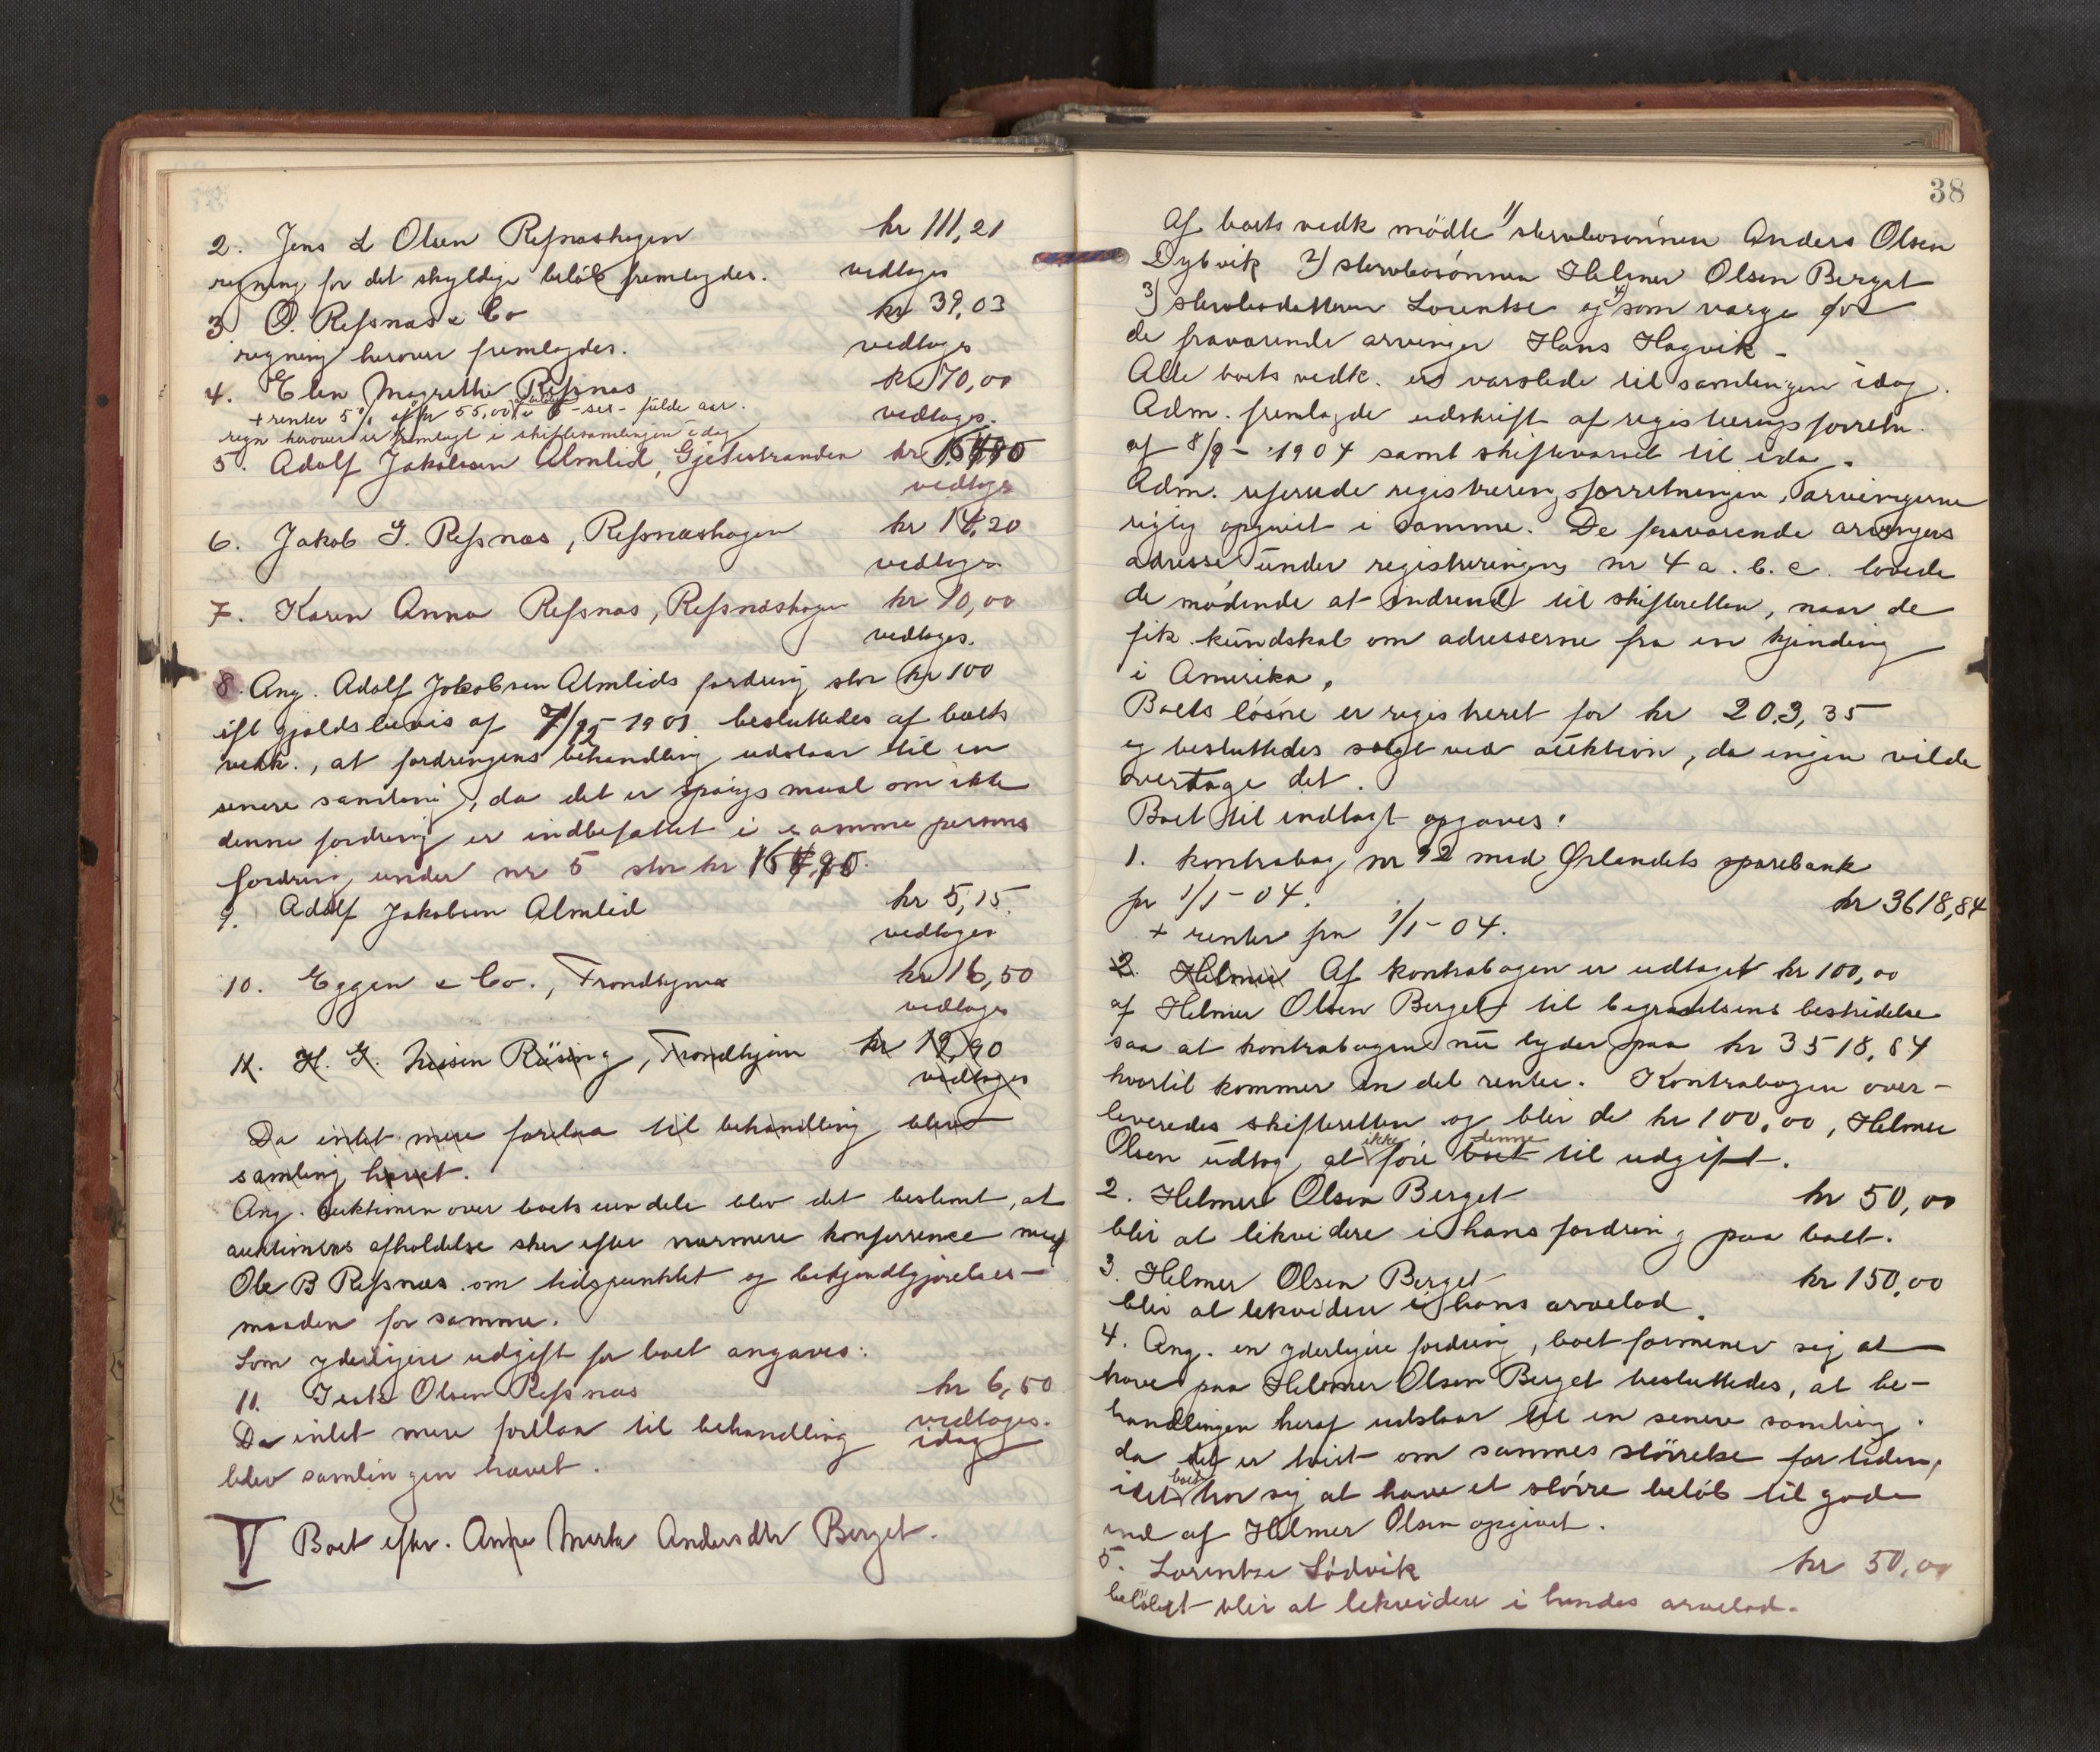 2. Jens L Olsen Refsnæshagen kr 111,21
regning for det skyldige beløb fremlagdes. vedtages
3 O. Refsnæs & Co kr 39,03
regning herover fremlagdes. vedtages
4. Elen Margrethe Refsnæs kr 70,00
+ renter 5% af kr 55,00 i 6 - sex - fulde aar. vedtages.
regn herover er fremlagt i skiftesamlingen idag
5. Adolf Jakobsen Almlid, Gjetestranden kr
vedtages
6. Jakob G. Refsnæs, Refsnæshagen kr 14,20
vedtages
7. Karen Anna Refsnæs, Refsnæshagen kr 10,00
vedtages.
8. Ang. Adolf Jakobsen Almlids fordring stor kr 100
ifl gjældsbevis af 7/12-1901 besluttedes af boets
vedk., at fordringens behandling udstaar til en
senere samling, da det er spørgsmaal om ikke
denne fordring er indbefattet i samme persons
fordring under nr 5 stor kr
9. Adolf Jakobsen Almlid kr 5,15
vedtages
10. Eggen & Co., Trondhjem kr 16,50
vedtages
11. H. G. Rüsing, Trondhjem kr 19,90
vedtages
Da intet mere forelaa til behandling blev
samling hævet.
Ang. auktionen over boets eiendele blev det bestemt, at
auktionens afholdelse sker efter nærmere konferrence med
Ole B Refsnæs om tidspunktet og bekjendtgjørelses-
maaden for samme.
Som yderligere udgift for boet angaves:
11. Olsen Refsnæs kr 6,50
vedtages.
Da intet mere forelaa til behandling idag
blev samlingen hævet.
V Boet efter. Anne Marta Andersdtr Berget.
38
Af boets vedk mødte 1) stervbosønnen Anders Olsen
Dybvik 2) stervbosønnen Helmer Olsen Berget
3) stervbodatteren Lorentse og 4) som værge for
de fraværende arvinger Hans Hagvik -
Alle boets vedk. er varslede til samlingen idag.
Adm. fremlagde udskrift af registreringsforretn.
af 8/9 - 1904 samt skiftevarsel til idag.
Adm. refererede registreringsforretningen, arvingerne
rigtig opgivet i samme. De fraværende arvingers
adresse under registreringens nr 4 a. b. c. lovede
de mødende at indsende til skifteretten, naar de
fik kundskab om adresserne fra en kjending
i Amerika.
Boets løsøre er registreret for kr 203,35
og besluttedes solgt ved auktion, da ingen vilde
overtage det.
Boet til indtægt opgaves:
1. kontrabog nr 92 med Ørlandets sparebank
pr 1/1-04. kr 3618,84
+ renter fra 1/1-04.
2. Helmer Af kontrabogen er udtaget kr 100,00
af Helmer Olsen Berget til begravelsens bestridelse
saa at kontrabogen nu lyder paa kr 3518,84
hvortil kommer en del renter. Kontrabogen over-
leveredes skifteretten og blir de kr 100,00, Helmer
Olsen udtog, at ikke føre boet denne til udgift.
2. Helmer Olsen Berget kr 50,00
blir at likvidere i hans fordring paa boet.
3. Helmer Olsen Berget kr 150,00
blir at likvidere i hans arvelod.
4. Ang. en yderligere fordring, boet formener sig at
have paa Helmer Olsen Berget besluttedes, at be-
handlingen heraf udstaar til en senere samling.
da det er tvist om sammes størrelse for tiden,
idet boet tror sig at have et større beløb til gode
end af Helmer Olsen opgivet.
5. Lorentse Sødvik kr 50,00
beløbet blir at likvidere i hendes arvelod.